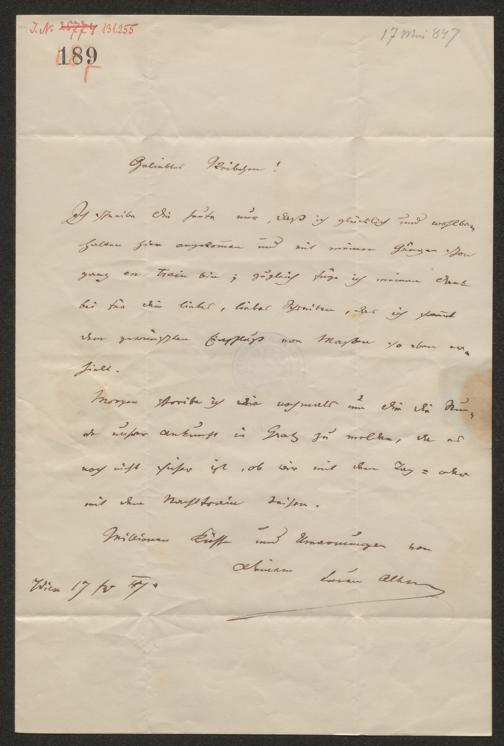 I.N. 131255
17 Mai 847
189
Geliebtes Weibchen!
Ich schreibe Dir heute nur, daß ich glücklich und wohlbe-
halten hier angekommen und mit meinen Gängen schon
ganz en train bin; zugleich füge ich meinen Dank
bei für Dein liebes, liebes Schreiben, das ich sammt
dem gewünschten von so eben er-
hielt.
Morgen schreibe ich Dir nochmals um Dir die Stun-
de unserer Ankunft in Gratz zu melden, da es
noch nicht sicher ist, ob wir mit dem Tag- oder
mit dem Nachttrain reisen.
Millionen Küsse und Umarmungen von
Deinem treuen
Wien 17/5 47.